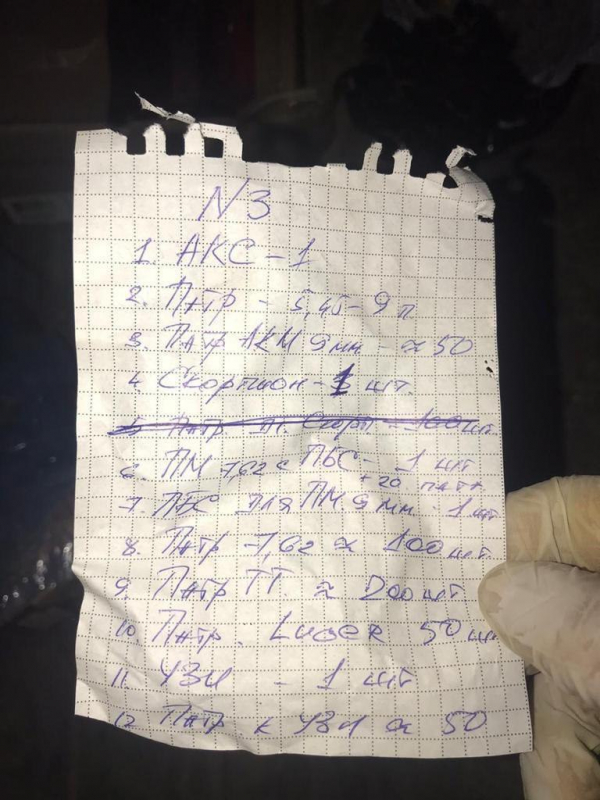 N3
1. АКС - 1
2. Патр - 5,45 - 9 п
3. Патр АКМ 9мм - ≈ 50
4. Скорпион - 1 шт.
5. Патр Скорп - 100 шт.
6. ПМ 7,62 с ПБС - 1 шт
+ 20 патр
7. ПБС для ПМ 9мм - 1 шт
8. Патр 7,62 ≈ 100 шт.
9. Патр ТТ. ≈ 200 шт
10. Патр. Luger 50 шт
11. УЗИ - 1 шт
12 Патр к УЗИ ≈ 50